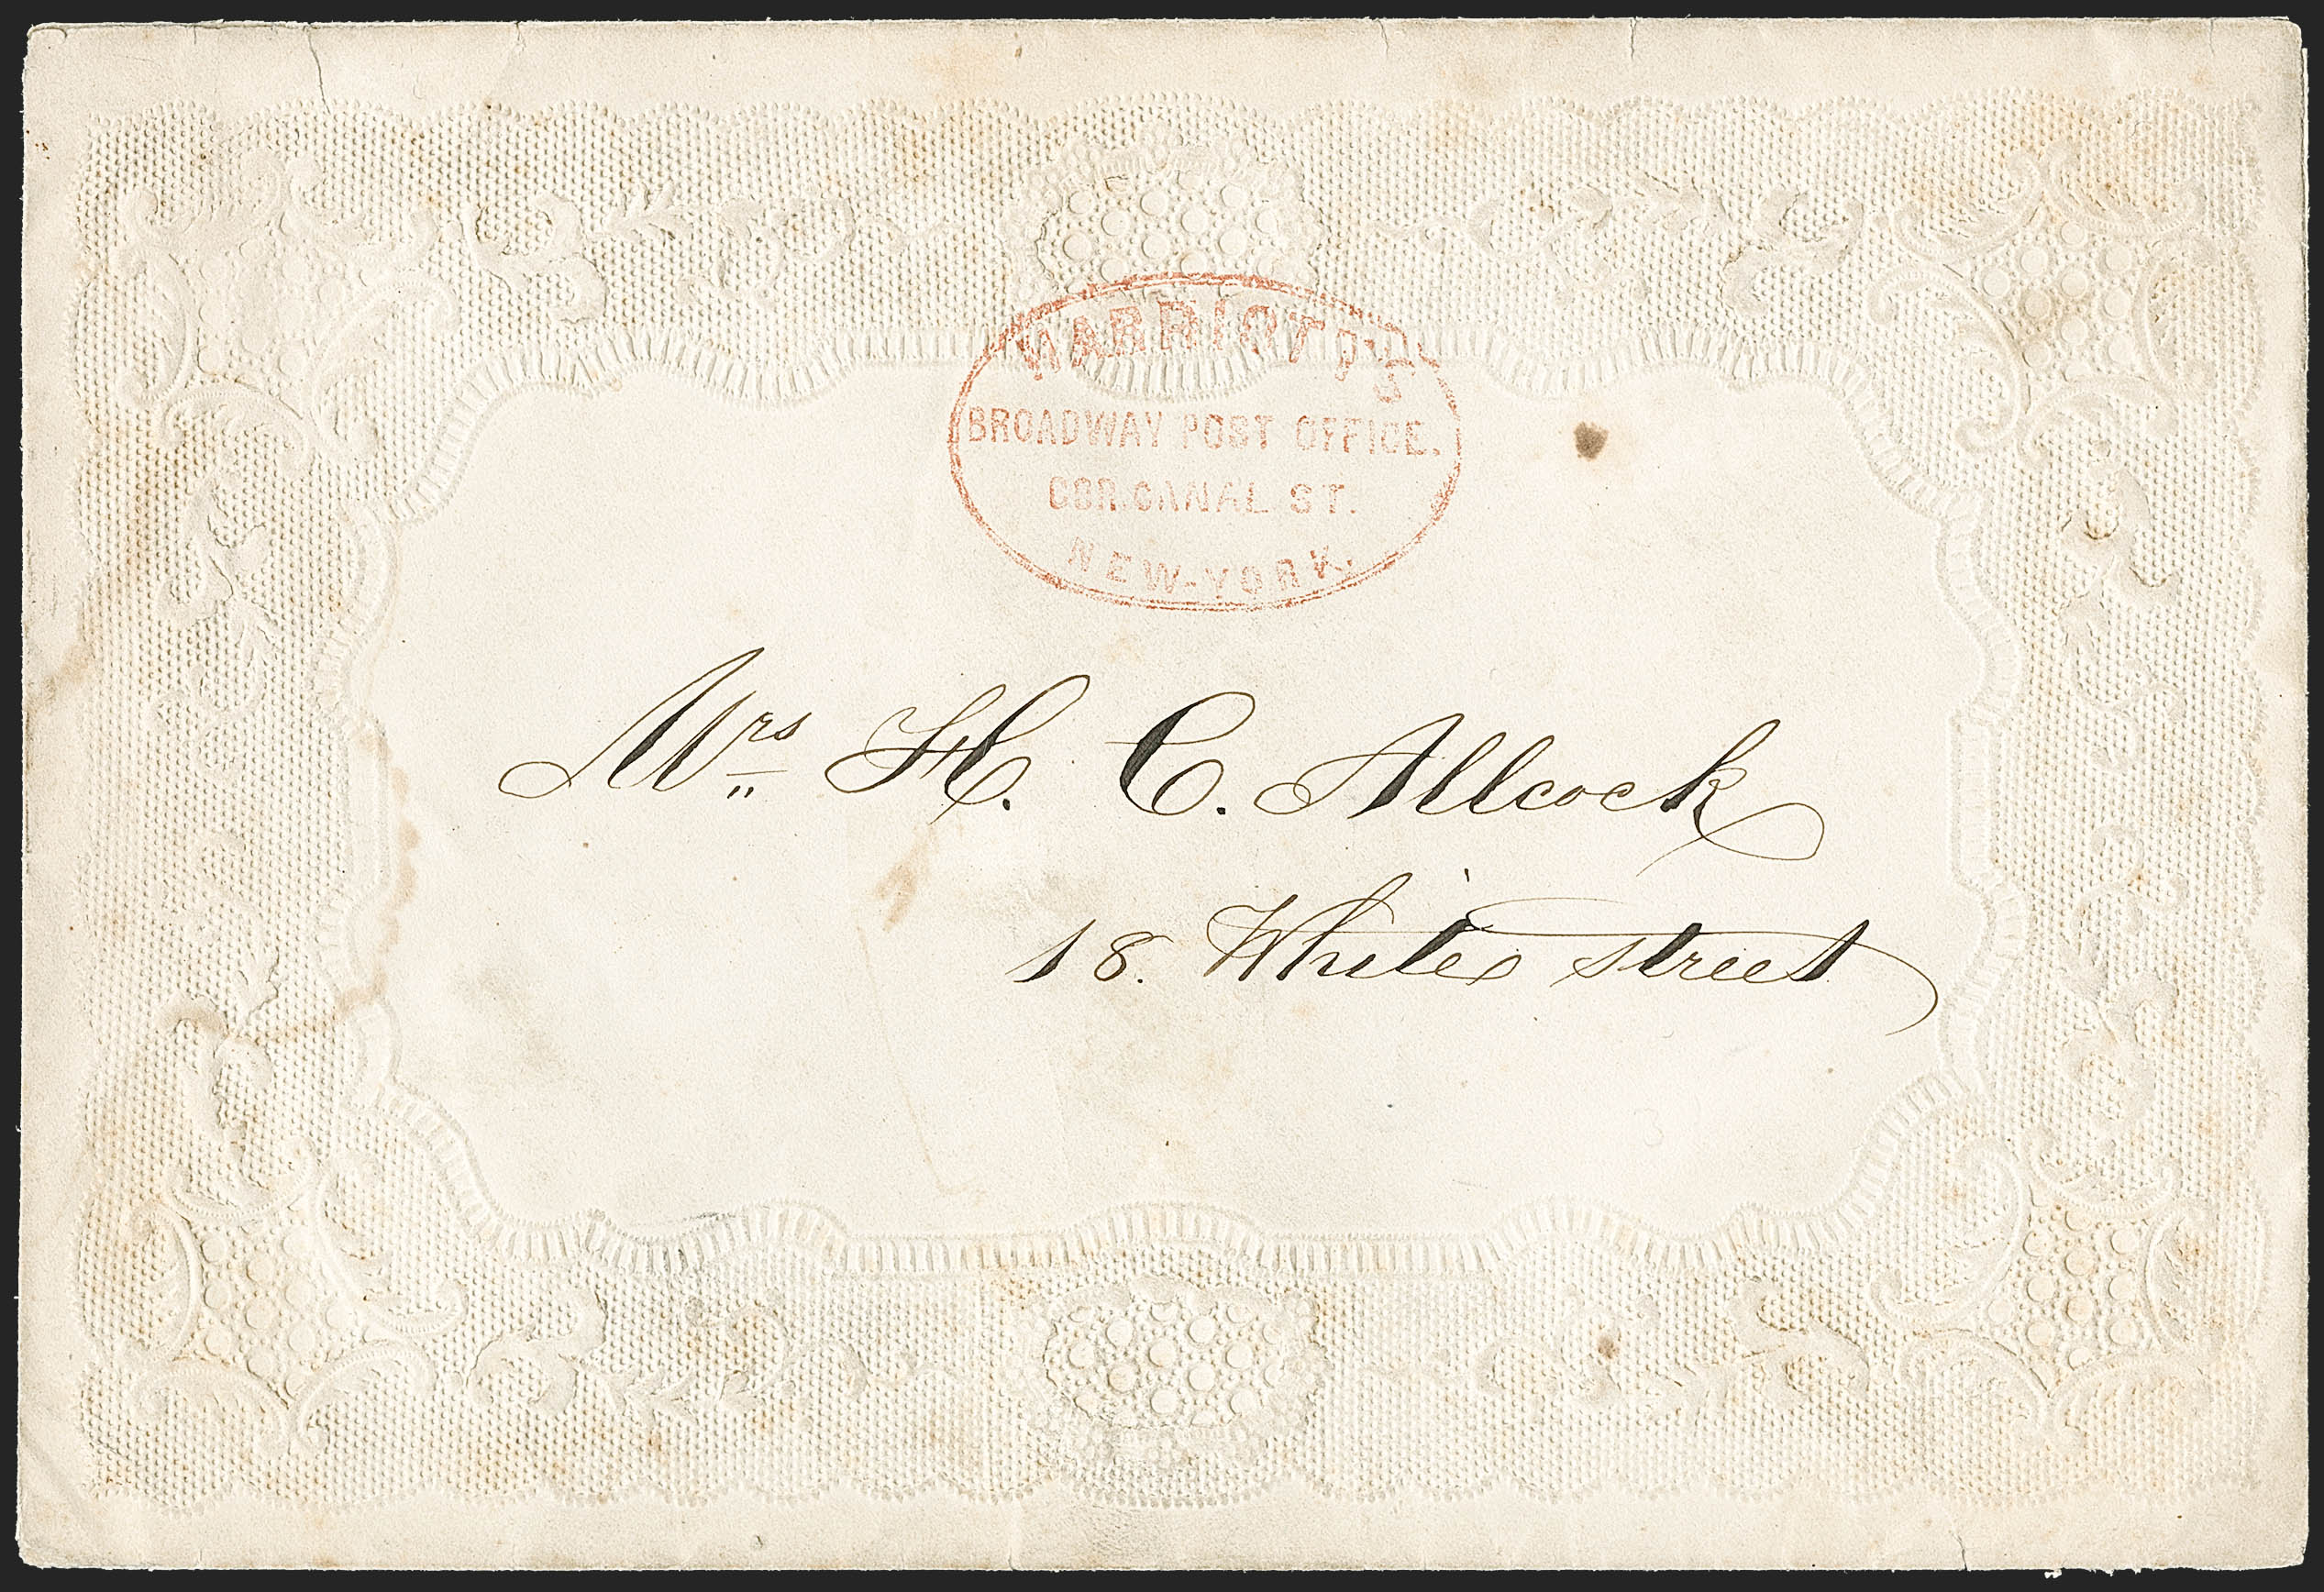 HARRIOTT'S
BROADWAY POST OFFICE.
COR. CANAL ST.
NEW-YORK.
Mrs H. C. Allcock
18. White street